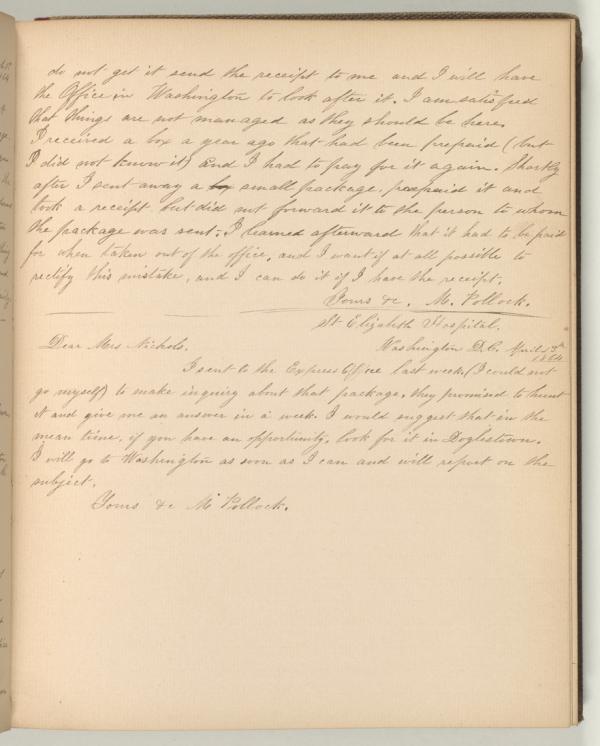 do not get it send the receipt to me and I will have
the Office in Washington to look after it. I am satisfied
that things are not managed as they should be here.
I received a box a year ago that had been prepaid (but
I did not know it) and I had to pay for it again. Shortly
after I sent away a box small package, prepaid it and
took a receipt but did not forward it to the person to whom
the package was sent. I learned afterward that it had to be paid
for when taken out of the office, and I want if at all possible to
rectify this mistake, and I can do it if I have the receipt.
Yours &c. M. Pollock.
St Elizabeth Hospital.
Washington D.C. April
1864
Dear Mrs Nichols.
I sent to the Express Office last week (I could not
go myself) to make inquiry about that package, they promised to hunt
it and give me an answer in a week. I would suggest that in the
mean time, if you have an opportunity, look for it in Doylestown.
I will go to Washington as soon as I can and will report on the
subject.
Yours &c M Pollock.